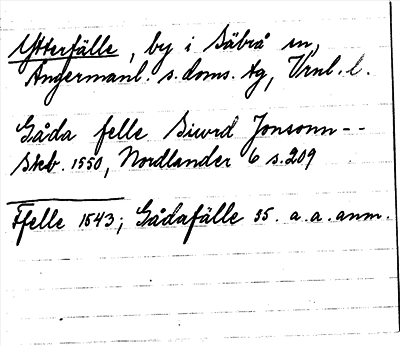 Ytterfälle, by i Säbrå sn,
Ångermanl. s. doms. tg, Vrnl. l.
Gåda felle Siurd Jonsonn--
Skeb. 1550, Nordlander 6 s. 209
Ffelle 1543; Gådafälle 35. a.a. anm.